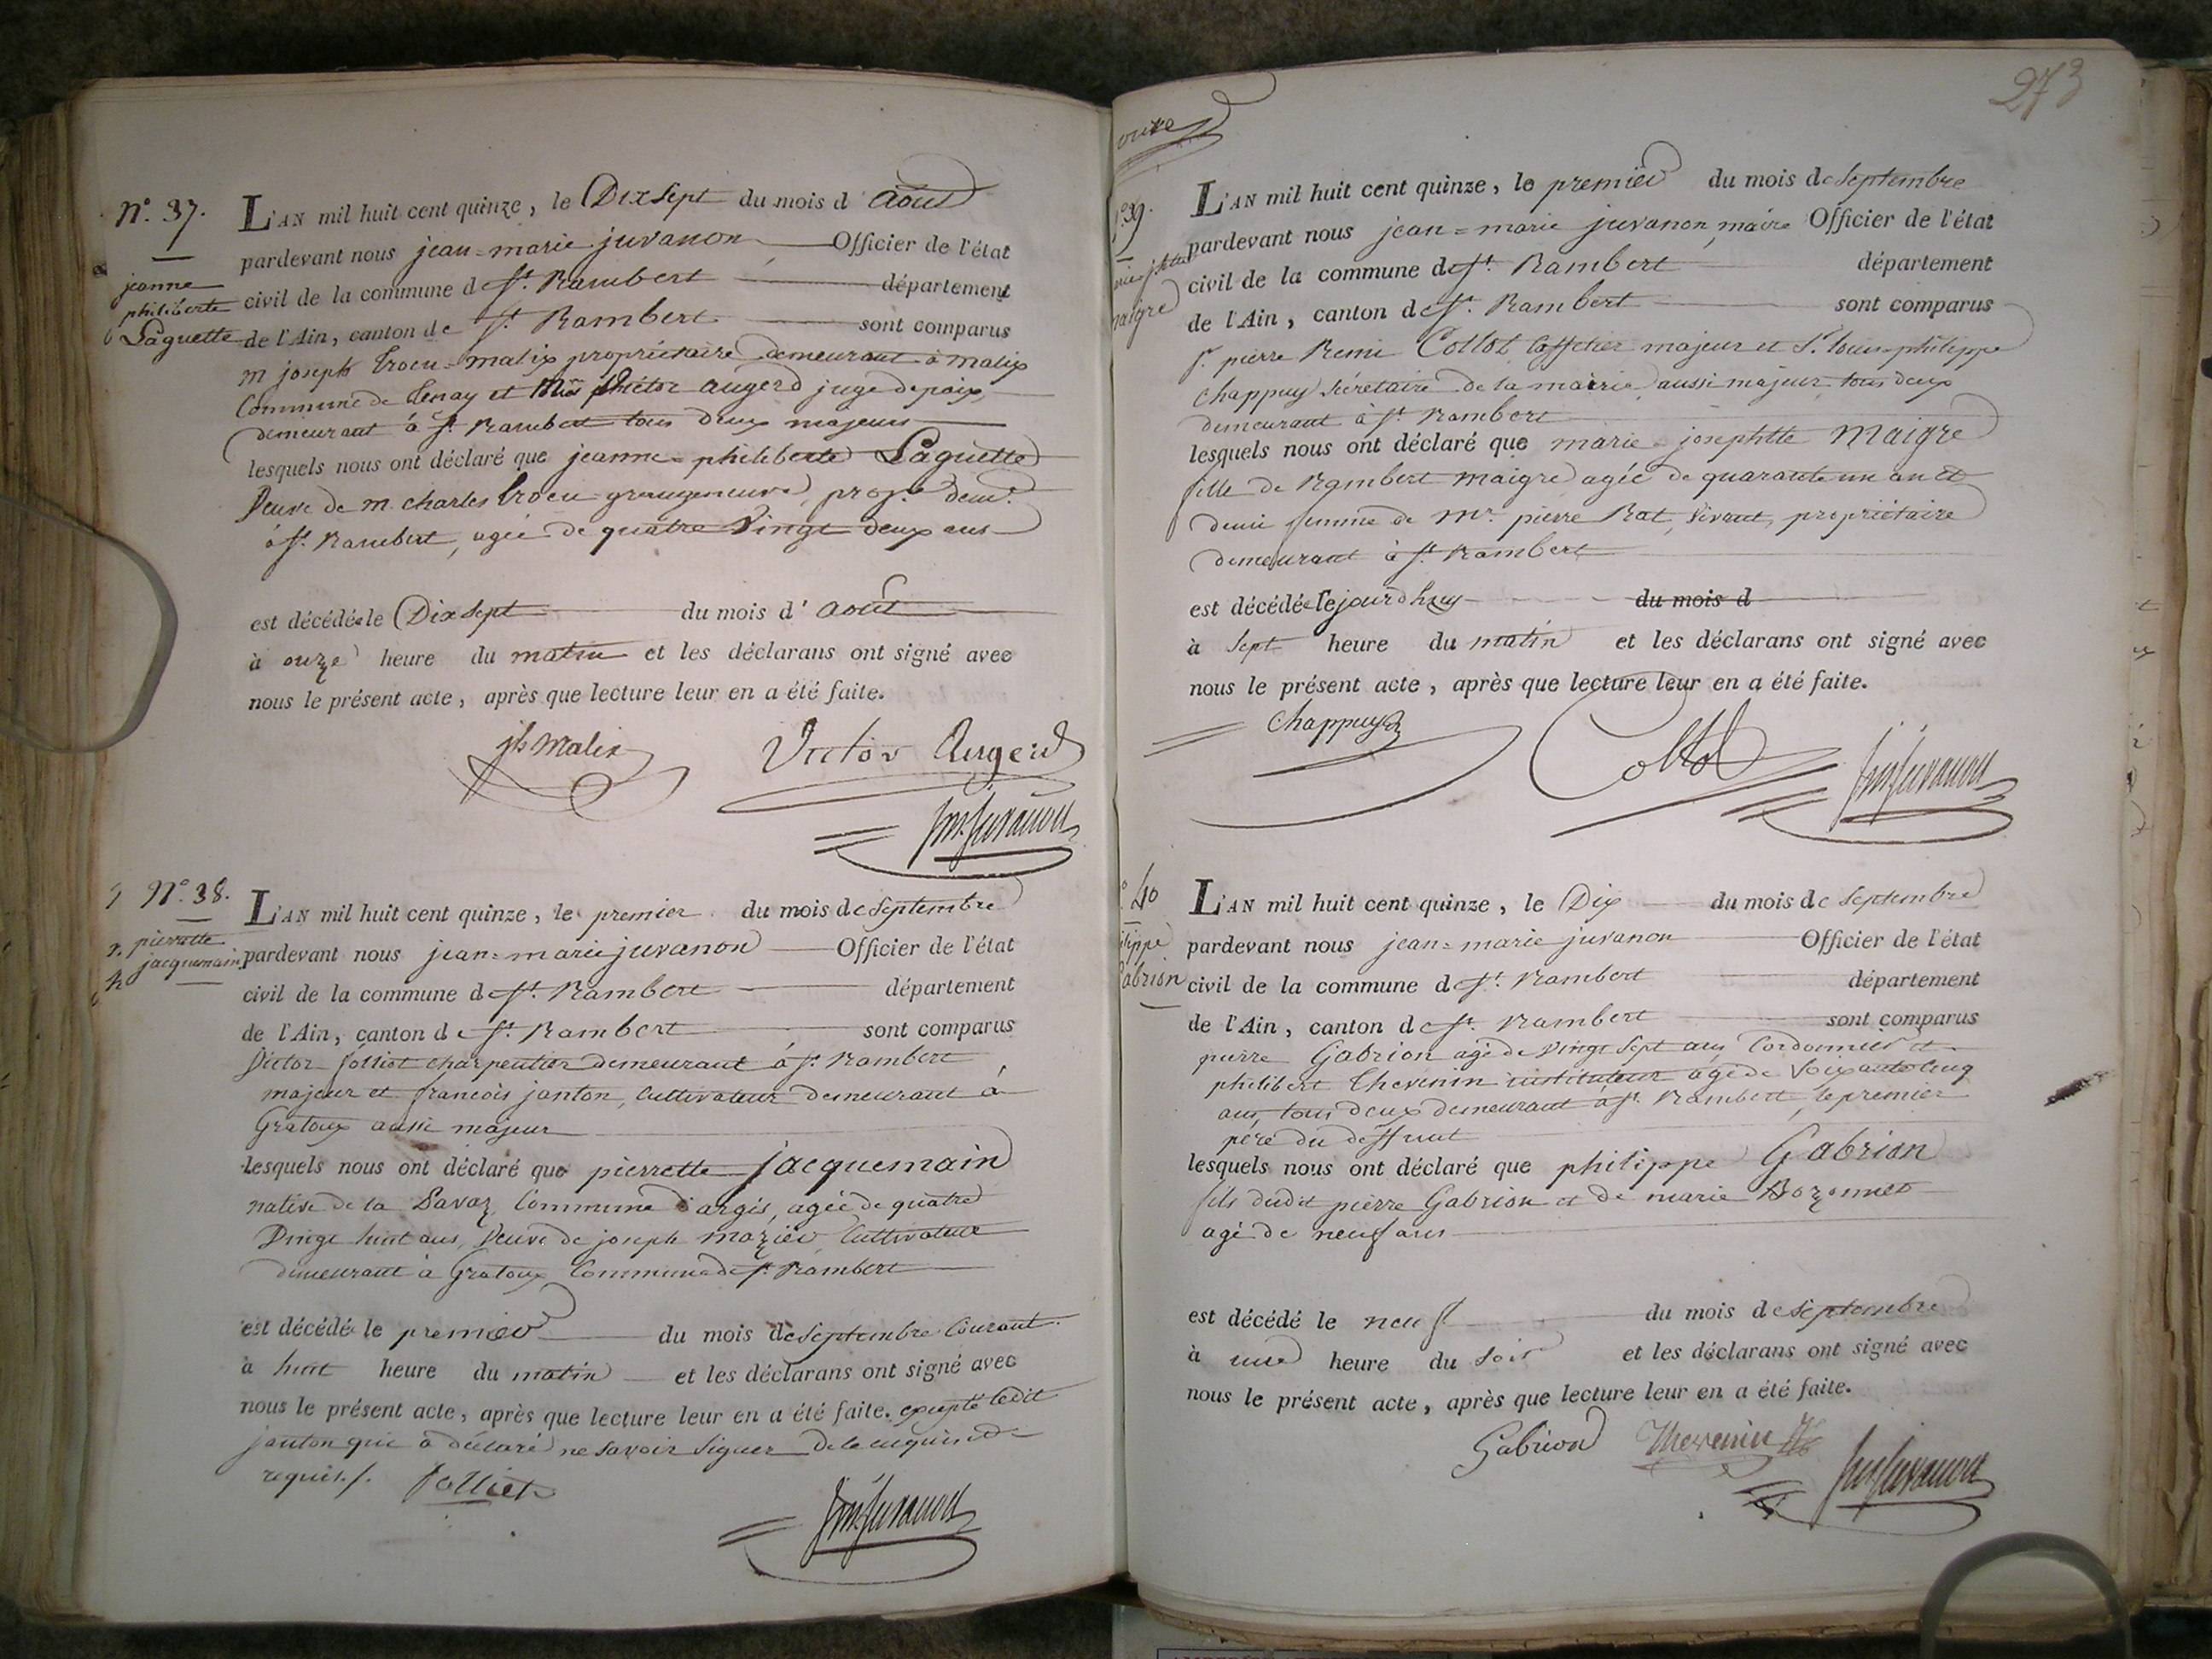 N.º 37.
jeanne
philiberte
Laguette
L'AN mil huit cent quinze, le Dix Sept du mois d aout
pardevant nous jean=marie juvanon Officier de l'état
civil de la commune de St. Rambert département
de l'Ain, canton de St. Rambert sont comparus
m joseph trocu=malix propriétaire demeurant à malix
Commune de tenay et Victor augerd juge de paix,
demeurant à St. Rambert tous deux majeurs
lesquels nous ont déclaré que jeanne=philiberte Laguette
Veuve de m. charles trocu grangeneuve, prop.re dem.t
à St. Rambert, agée de quatre Vingt deux ans
est décédée le Dix Sept du mois d' aout
à onze heure du matin et les déclarans ont signé avec
nous le présent acte, après que lecture leur en a été faite.
jh Malix Victor Augerd
jm juvanon
N.º 38.
pierrette
jacquemain
L'AN mil huit cent quinze, le premier du mois de Septembre
pardevant nous jean=marie juvanon Officier de l'état
civil de la commune de St. Rambert département
de l'Ain, canton de St. Rambert sont comparus
Victor folliet charpentier demeurant à St. Rambert
majeur et francois janton, Cultivateur demeurant à
Gratoux aussi majeur
lesquels nous ont déclaré que pierrette jacquemain
native de la Commune d'argis, agée de quatre
Vingt huit ans, Veuve de joseph mazier Cultivateur
demeurant à Gratoux Commune de St. Rambert
est décédé le premier du mois de Septembre Courant.
à huit heure du matin et les déclarans ont signé avec
nous le présent acte, après que lecture leur en a été faite. excepté ledit
janton qui a déclaré ne savoir Signer de ce enquis et
requis./. folliet
jm juvanon
273
39.
maigre
L'AN mil huit cent quinze, le premier du mois de Septembre
pardevant nous jean=marie juvanon, maire Officier de l'état
civil de la commune de St. Rambert département
de l'Ain, canton de St. Rambert sont comparus
Sr. pierre Remi Collot Caffetier majeur et Sr. louis=philippe
chappuy Sécretaire de la mairie, aussi majeur, tous deux
demeurant à St. Rambert
lesquels nous ont déclaré que marie=josephtte Maigre
fille de Rambert maigre agée de quarante un an et
demi femme de Mr. pierre Rat, Vivant, propriétaire
demeurant à St. Rambert
est décédée cejourdhuy du mois d
à Sept heure du matin et les déclarans ont signé avec
nous le présent acte, après que lecture leur en a été faite.
Chappuy Collot jm juvanon
40
Gabrion
L'AN mil huit cent quinze, le Dix du mois de Septembre
pardevant nous jean=marie juvanon Officier de l'état
civil de la commune de St. Rambert département
de l'Ain, canton de St. Rambert sont comparus
pierre Gabrion agé de Vingt Sept ans, Cordonnier et
philibert thevenin instituteur agé de Soixante Cinq
ans, tous deux demeurant à St. Rambert, le premier
père du deffunt
lesquels nous ont déclaré que philippe Gabrion
fils dudit pierre Gabrion et de marie Bozonnet
agé de neuf ans
est décédé le neuf du mois de Septembre
à une heure du Soir et les déclarans ont signé avec
nous le présent acte, après que lecture leur en a été faite.
Gabrion Thevenin jm juvanon